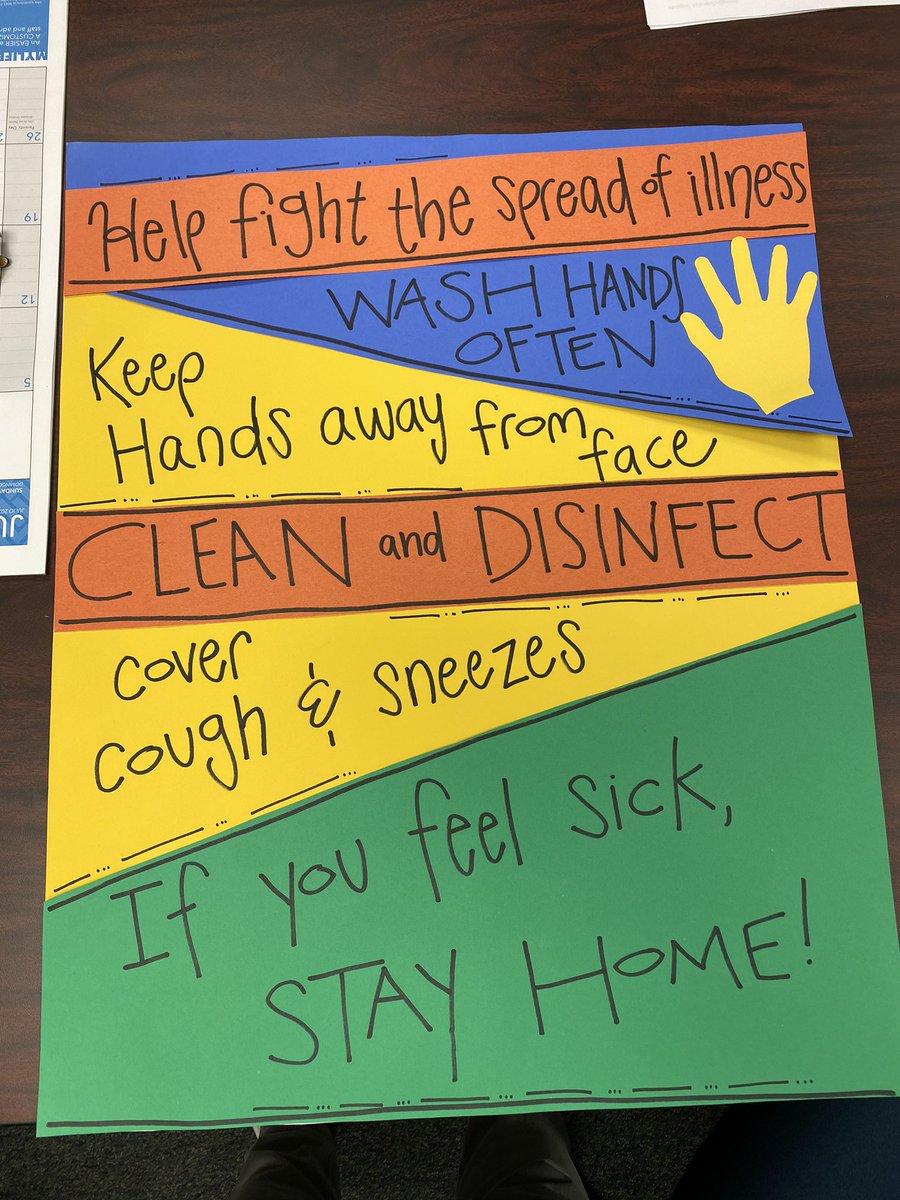 Help fight the spread of illness
WASH HANDS
OFTEN
Keep
Hands away from
face
CLEAN and DISINFECT
cover
cough & sneezes
If you feel sick,
STAY HOME!
MYLIFE
26
19
12
5
SUNDAY